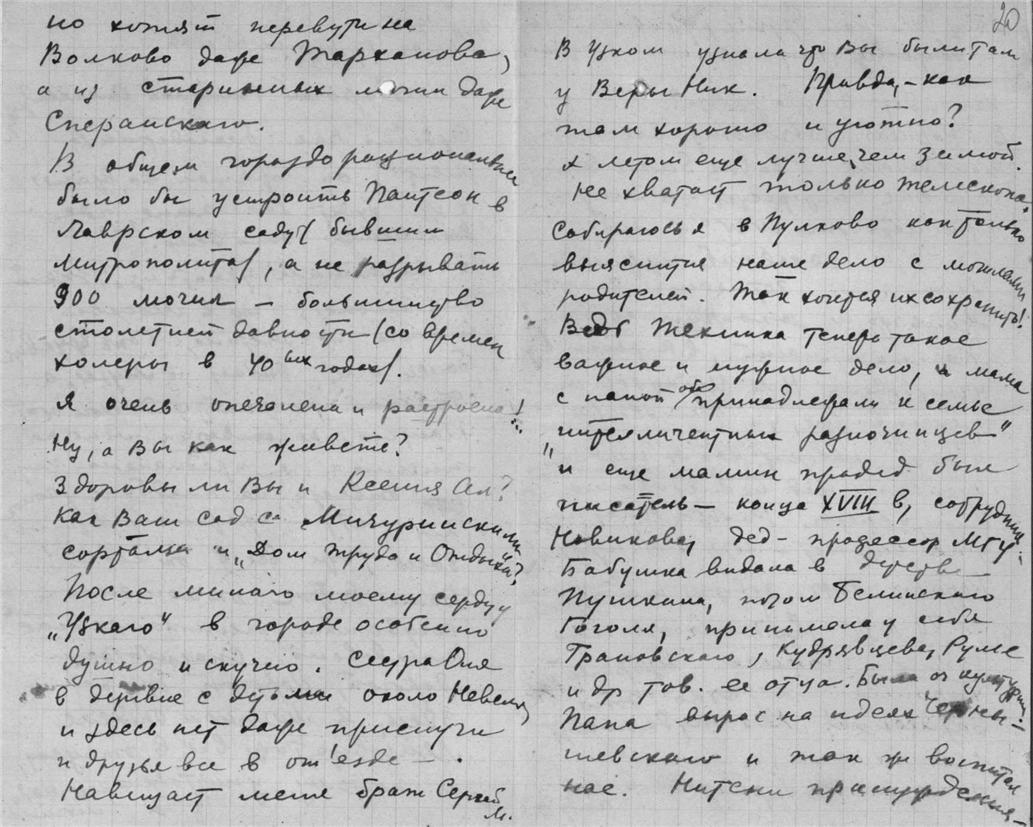 но хотят перевезти на
Волково даже Тарханова,
а из старинных могил даже
Сперанскаго.
В общем гораздо рациональнее
было бы устроить Пантеон в
Лаврском саду (бывшем
митрополита), а не разрывать
900 могил – большинство
столетней давности (со времен
холеры в 40ых годах).
Я очень опечалена и растроена!..
Ну, а Вы как живете?
Здоровы ли Вы и Ксения Ал?
Как Ваш сад с Мичуринскими
сортами и "Дом труда и Отдыха"?
После милаго моему сердцу
"Узкаго" в городе особенно
душно и скучно. Сестра Оля
в деревне с детьми около Невеля,
и здесь нет даже прислуги
и друзья все в отъезде –.
Навещает меня брат Сергей
М.
20
В Узком узнала что Вы были там
у Веры Ник. Правда, – как
там хорошо и уютно?
А летом еще лучше, чем зимой.
Не хватает только телескопа.
Собираюсь я в Пулково как только
выяснится наше дело с могилами
родителей. Так хочется их сохранить!
Ведь техника теперь такое
важное и нужное дело, а мама
с папой оба принадлежали к семье
"интеллигентных разночинцев"
и еще мамин прадед был
писатель – конца XVIII в, сотрудник
Новикова, дед – профессор МГУ.
Бабушка видала в детстве
Пушкина, потом Белинского
Гоголя, принимала у себя
Грановского, Кудрявцева, Рулье
и др тов. ее отца. Была оч культурн.!
Папа вырос на идеях Черны-
шевского и так же воспитал
нас. Ниточки принуждения –